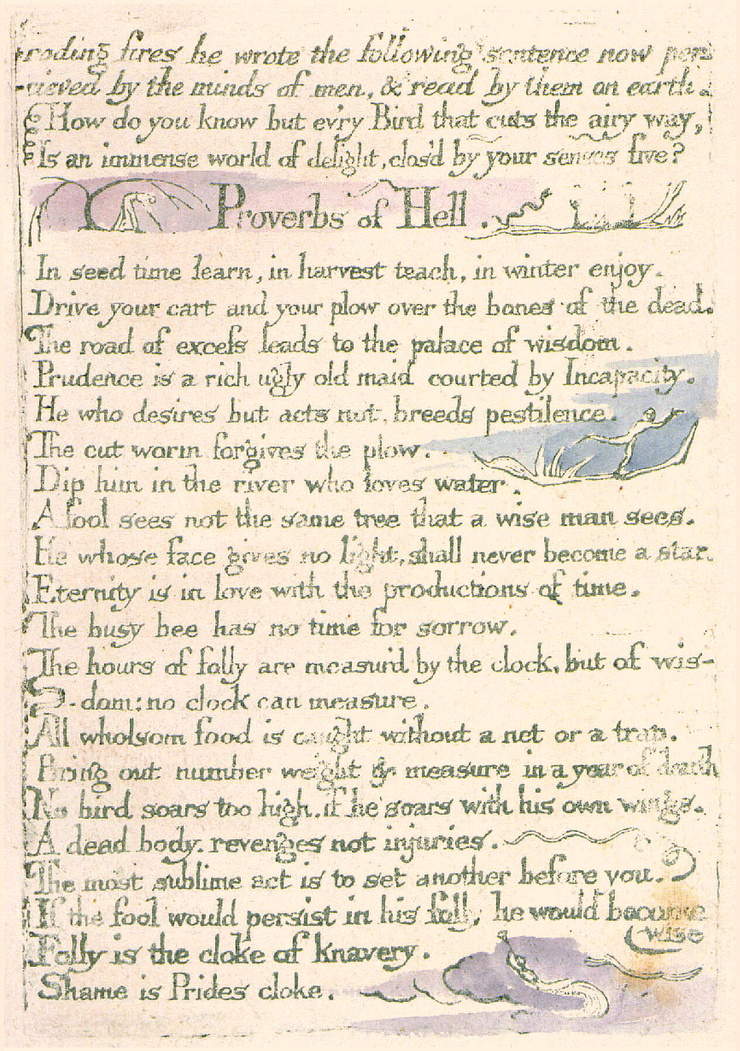 roding fires he wrote the following sentence now per=
-cieved by the minds of men, & read by them on earth.
How do you know but ev'ry Bird that cuts the airy way,
Is an immense world of delight, clos'd by your senses five?
Proverbs of Hell.
In seed time learn, in harvest teach, in winter enjoy.
Drive your cart and your plow over the bones of the dead.
The road of excess leads to the palace of wisdom.
Prudence is a rich ugly old maid courted by Incapacity.
He who desires but acts not, breeds pestilence.
The cut worm forgives the plow.
Dip him in the river who loves water.
A fool sees not the same tree that a wise man sees.
He whose face gives no light, shall never become a star.
Eternity is in love with the productions of time.
The busy bee has no time for sorrow.
The hours of folly are measur'd by the clock, but of wis-
-dom: no clock can measure.
All wholsom food is caught without a net or a trap.
Bring out number weight & measure in a year of dearth
No bird soars too high, if he soars with his own wings.
A dead body. revenges not injuries.
The most sublime act is to set another before you.
If the fool would persist in his folly he would become
wise
Folly is the cloke of knavery.
Shame is Prides cloke.